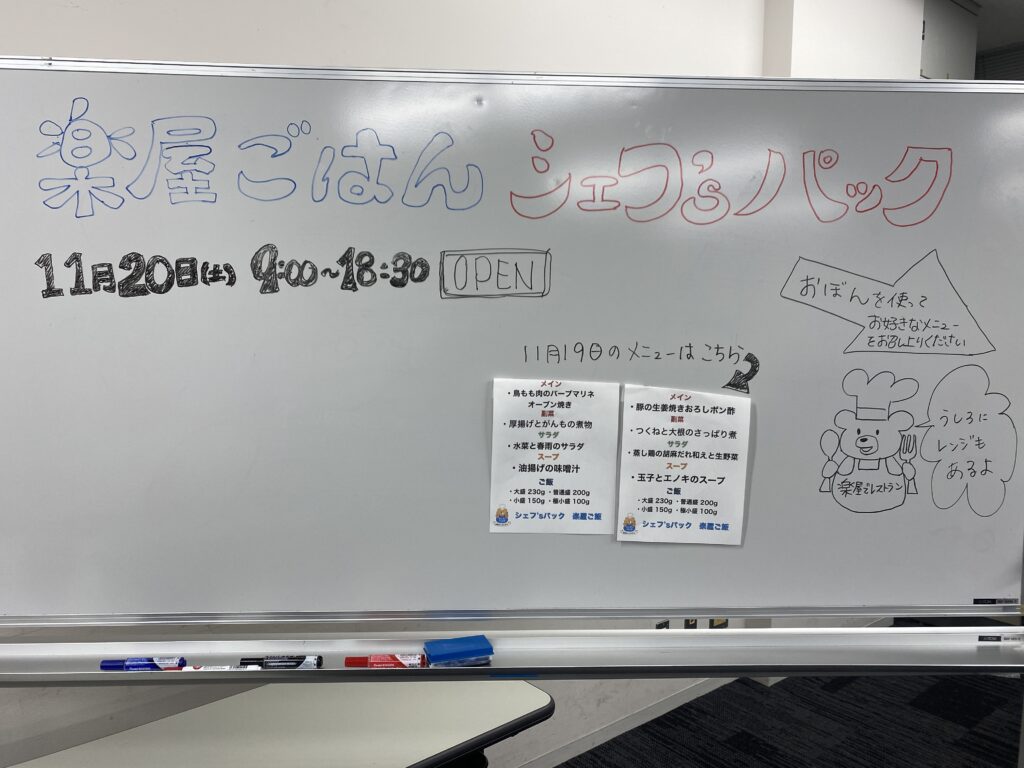 楽屋ごはん シェフ'sパック
11月20日(土) 9:00~18:30 OPEN
おぼんを使って
お好きなメニュー
をお召し上りください
11月19日のメニューはこちら
メイン
・鳥もも肉のハーブマリネ
オーブン焼き
副菜
・厚揚げとがんもの煮物
サラダ
・水菜と春雨のサラダ
スープ
・油揚げの味噌汁
ご飯
・大盛 230g ・普通盛 200g
・小盛 150g ・極小盛 100g
シェフ'sパック 楽屋ご飯
メイン
・豚の生姜焼きおろしポン酢
副菜
・つくねと大根のさっぱり煮
サラダ
・蒸し鶏の胡麻だれ和えと生野菜
スープ
・玉子とエノキのスープ
ご飯
・大盛 230g ・普通盛 200g
・小盛 150g ・極小盛 100g
シェフ'sパック 楽屋ご飯
うしろに
レンジも
あるよ
楽屋でレストラン